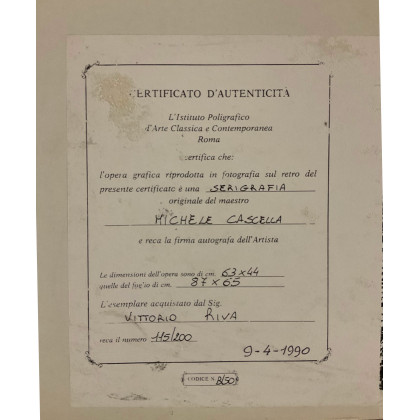 CERTIFICATO D'AUTENTICITÀ
L'Istituto Poligrafico
d'Arte Classica e Contemporanea
Roma
certifica che:
l'opera grafica riprodotta in fotografia sul retro del
presente certificato è una SERIGRAFIA
originale del maestro
MICHELE CASCELLA
e reca la firma autografa dell'Artista
Le dimensioni dell'opera sono di cm. 63x44
quelle del foglio di cm. 87x65
L'esemplare acquistato dal Sig.
VITTORIO RIVA
reca il numero 115/200
9-4-1990
CODICE N.